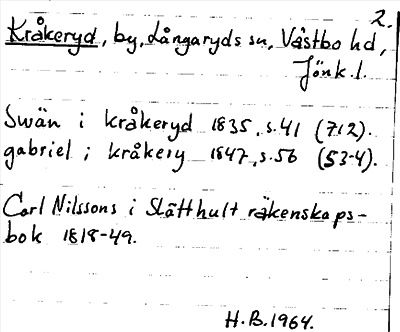 2.
Kråkeryd, by, Långaryds sn, Västbo hd,
Jönk. l.
Swän i kråkeryd 1835, s. 41 (712).
gabriel i kråkery 1847, s. 56 (53-4).
Carl Nilssons i Slätthult räkenskaps-
bok 1818-49.
H.B. 1964.